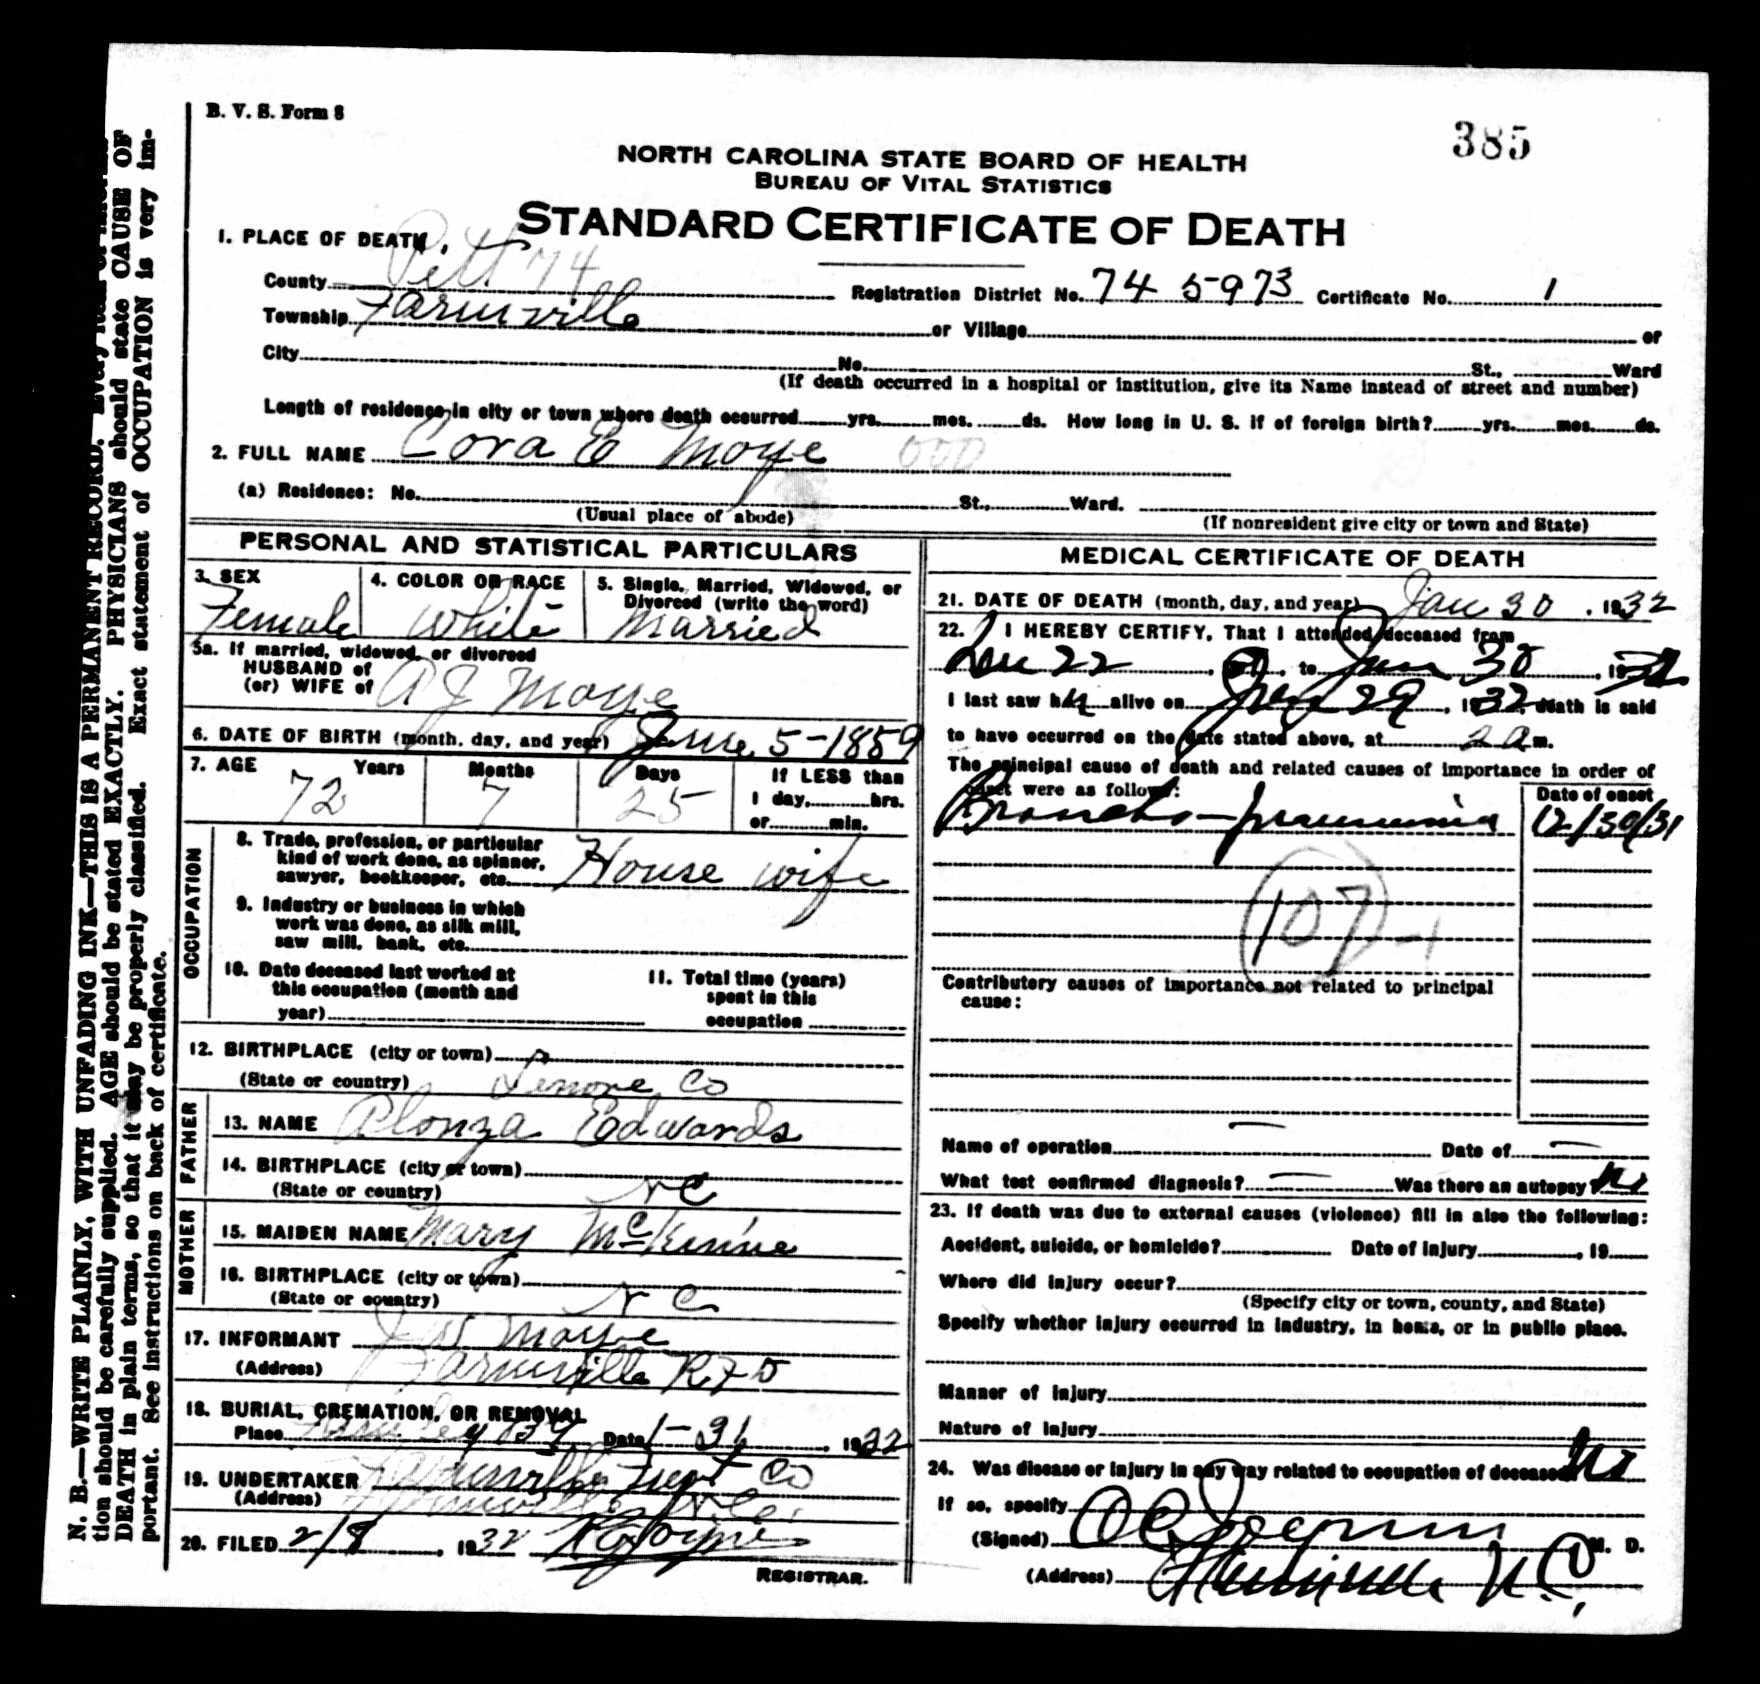 B. V. S. Form 8
385
NORTH CAROLINA STATE BOARD OF HEALTH
BUREAU OF VITAL STATISTICS
STANDARD CERTIFICATE OF DEATH
1. PLACE OF DEATH
County Pitt 74 Registration District No. 74 5973 Certificate No. 1
Township Farmville or Village or
City No. St., Ward
(If death occurred in a hospital or institution, give its Name instead of street and number)
Length of residence in city or town where death occurred yrs. mos. ds. How long in U. S. if of foreign birth? yrs. mos. ds.
2. FULL NAME Cora E Moye 000
(a) Residence: No. St., Ward.
(Usual place of abode) (If nonresident give city or town and State)
PERSONAL AND STATISTICAL PARTICULARS
3. SEX 4. COLOR OR RACE 5. Single, Married, Widowed, or
Divorced (write the word)
Female White Married
5a. If married, widowed, or divorced
HUSBAND of
(or) WIFE of A J Moye
6. DATE OF BIRTH (month, day, and year) June 5-1859
7. AGE Years Months Days If LESS than
72 7 25 1 day, hrs.
or min.
OCCUPATION
8. Trade, profession, or particular
kind of work done, as spinner,
sawyer, bookkeeper, etc. House wife
9. Industry or business in which
work was done, as silk mill,
saw mill, bank, etc.
10. Date deceased last worked at
this occupation (month and
year)
11. Total time (years)
spent in this
occupation
12. BIRTHPLACE (city or town)
(State or country) Lenore Co
FATHER
13. NAME Alonza Edwards
14. BIRTHPLACE (city or town)
(State or country) N C
MOTHER
15. MAIDEN NAME Mary McKinne
16. BIRTHPLACE (city or town)
(State or country) N C
17. INFORMANT Moye
(Address) Farmville RFD
18. BURIAL, CREMATION, OR REMOVAL
Place Date 1-31, 1932
19. UNDERTAKER Farmville Furt Co
(Address) Farmville N.C.
20. FILED 2/8, 1932
REGISTRAR.
MEDICAL CERTIFICATE OF DEATH
21. DATE OF DEATH (month, day, and year) Jan 30, 1932
22. I HEREBY CERTIFY, That I attended deceased from
Dec 22, to Jan 30, 1932
I last saw her alive on Jan 29, 1932 death is said
to have occurred on the date stated above, at 2 a m.
The principal cause of death and related causes of importance in order of
onset were as follows:
Date of onset
Broncho-pneumonia 12/30/31
107-1
Contributory causes of importance not related to principal
cause:
Name of operation — Date of —
What test confirmed diagnosis? — Was there an autopsy? No
23. If death was due to external causes (violence) fill in also the following:
Accident, suicide, or homicide? Date of injury, 19
Where did injury occur?
(Specify city or town, county, and State)
Specify whether injury occurred in industry, in home, or in public place.
Manner of injury
Nature of injury
24. Was disease or injury in any way related to occupation of deceased? No
If so, specify
(Signed) M. D.
(Address) Farmville N.C.
N. B.—WRITE PLAINLY, WITH UNFADING INK—THIS IS A PERMANENT RECORD. Every item of
tion should be carefully supplied. AGE should be stated EXACTLY. PHYSICIANS should state CAUSE OF
DEATH in plain terms, so that it may be properly classified. Exact statement of OCCUPATION is very im-
portant. See instructions on back of certificate.